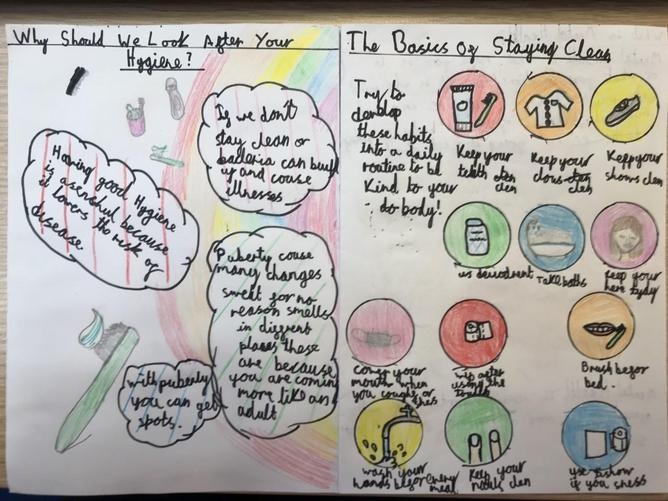 Why Should We Look After Your
Hygiene?
If we don't
stay clean or
bacteria can buil
up and couse
illnesses
Having good Hygiene
is because
it lowers the risk of
disease.
Puberty couse
many changes
sweat for no
reason smells
in
places these
are because
you are coming
more like an
adult
with puberty
you can get
spots.
The Basics Of Staying Clean
Try to
devlop
these habits
into a daily
routine to be
Kind to your
body!
Keep your
teeth
clen
Keep your
clen
your
clen
us
Take baths
keep your
here tydy
your
mouth when
you cought or
after
using the
Brush befor
bed.
wash your
hands befor every
meal
keep your
nails clen
use
if you